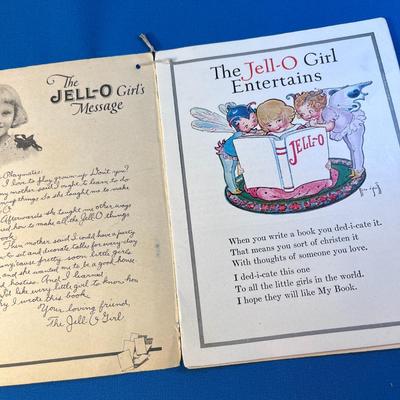 The
JELL-O Girl's
Message
Playmates:
I love to play grown-up. Don't you?
mother said I ought to learn to do
things so she taught me to make
Afterwards she taught me other ways
and how to make all the Jell-O things
book.
Then mother said I could have a party
to set and decorate tables for every-day
'cause pretty soon little girls
and she wanted me to be a good house
hostess. And I learned
like every little girl to know how
why I wrote this book.
Your loving friend,
The Jell-O Girl
The Jell-O Girl
Entertains
JELL-O
When you write a book you ded-i-cate it.
That means you sort of christen it
With thoughts of someone you love.
I ded-i-cate this one
To all the little girls in the world.
I hope they will like My Book.